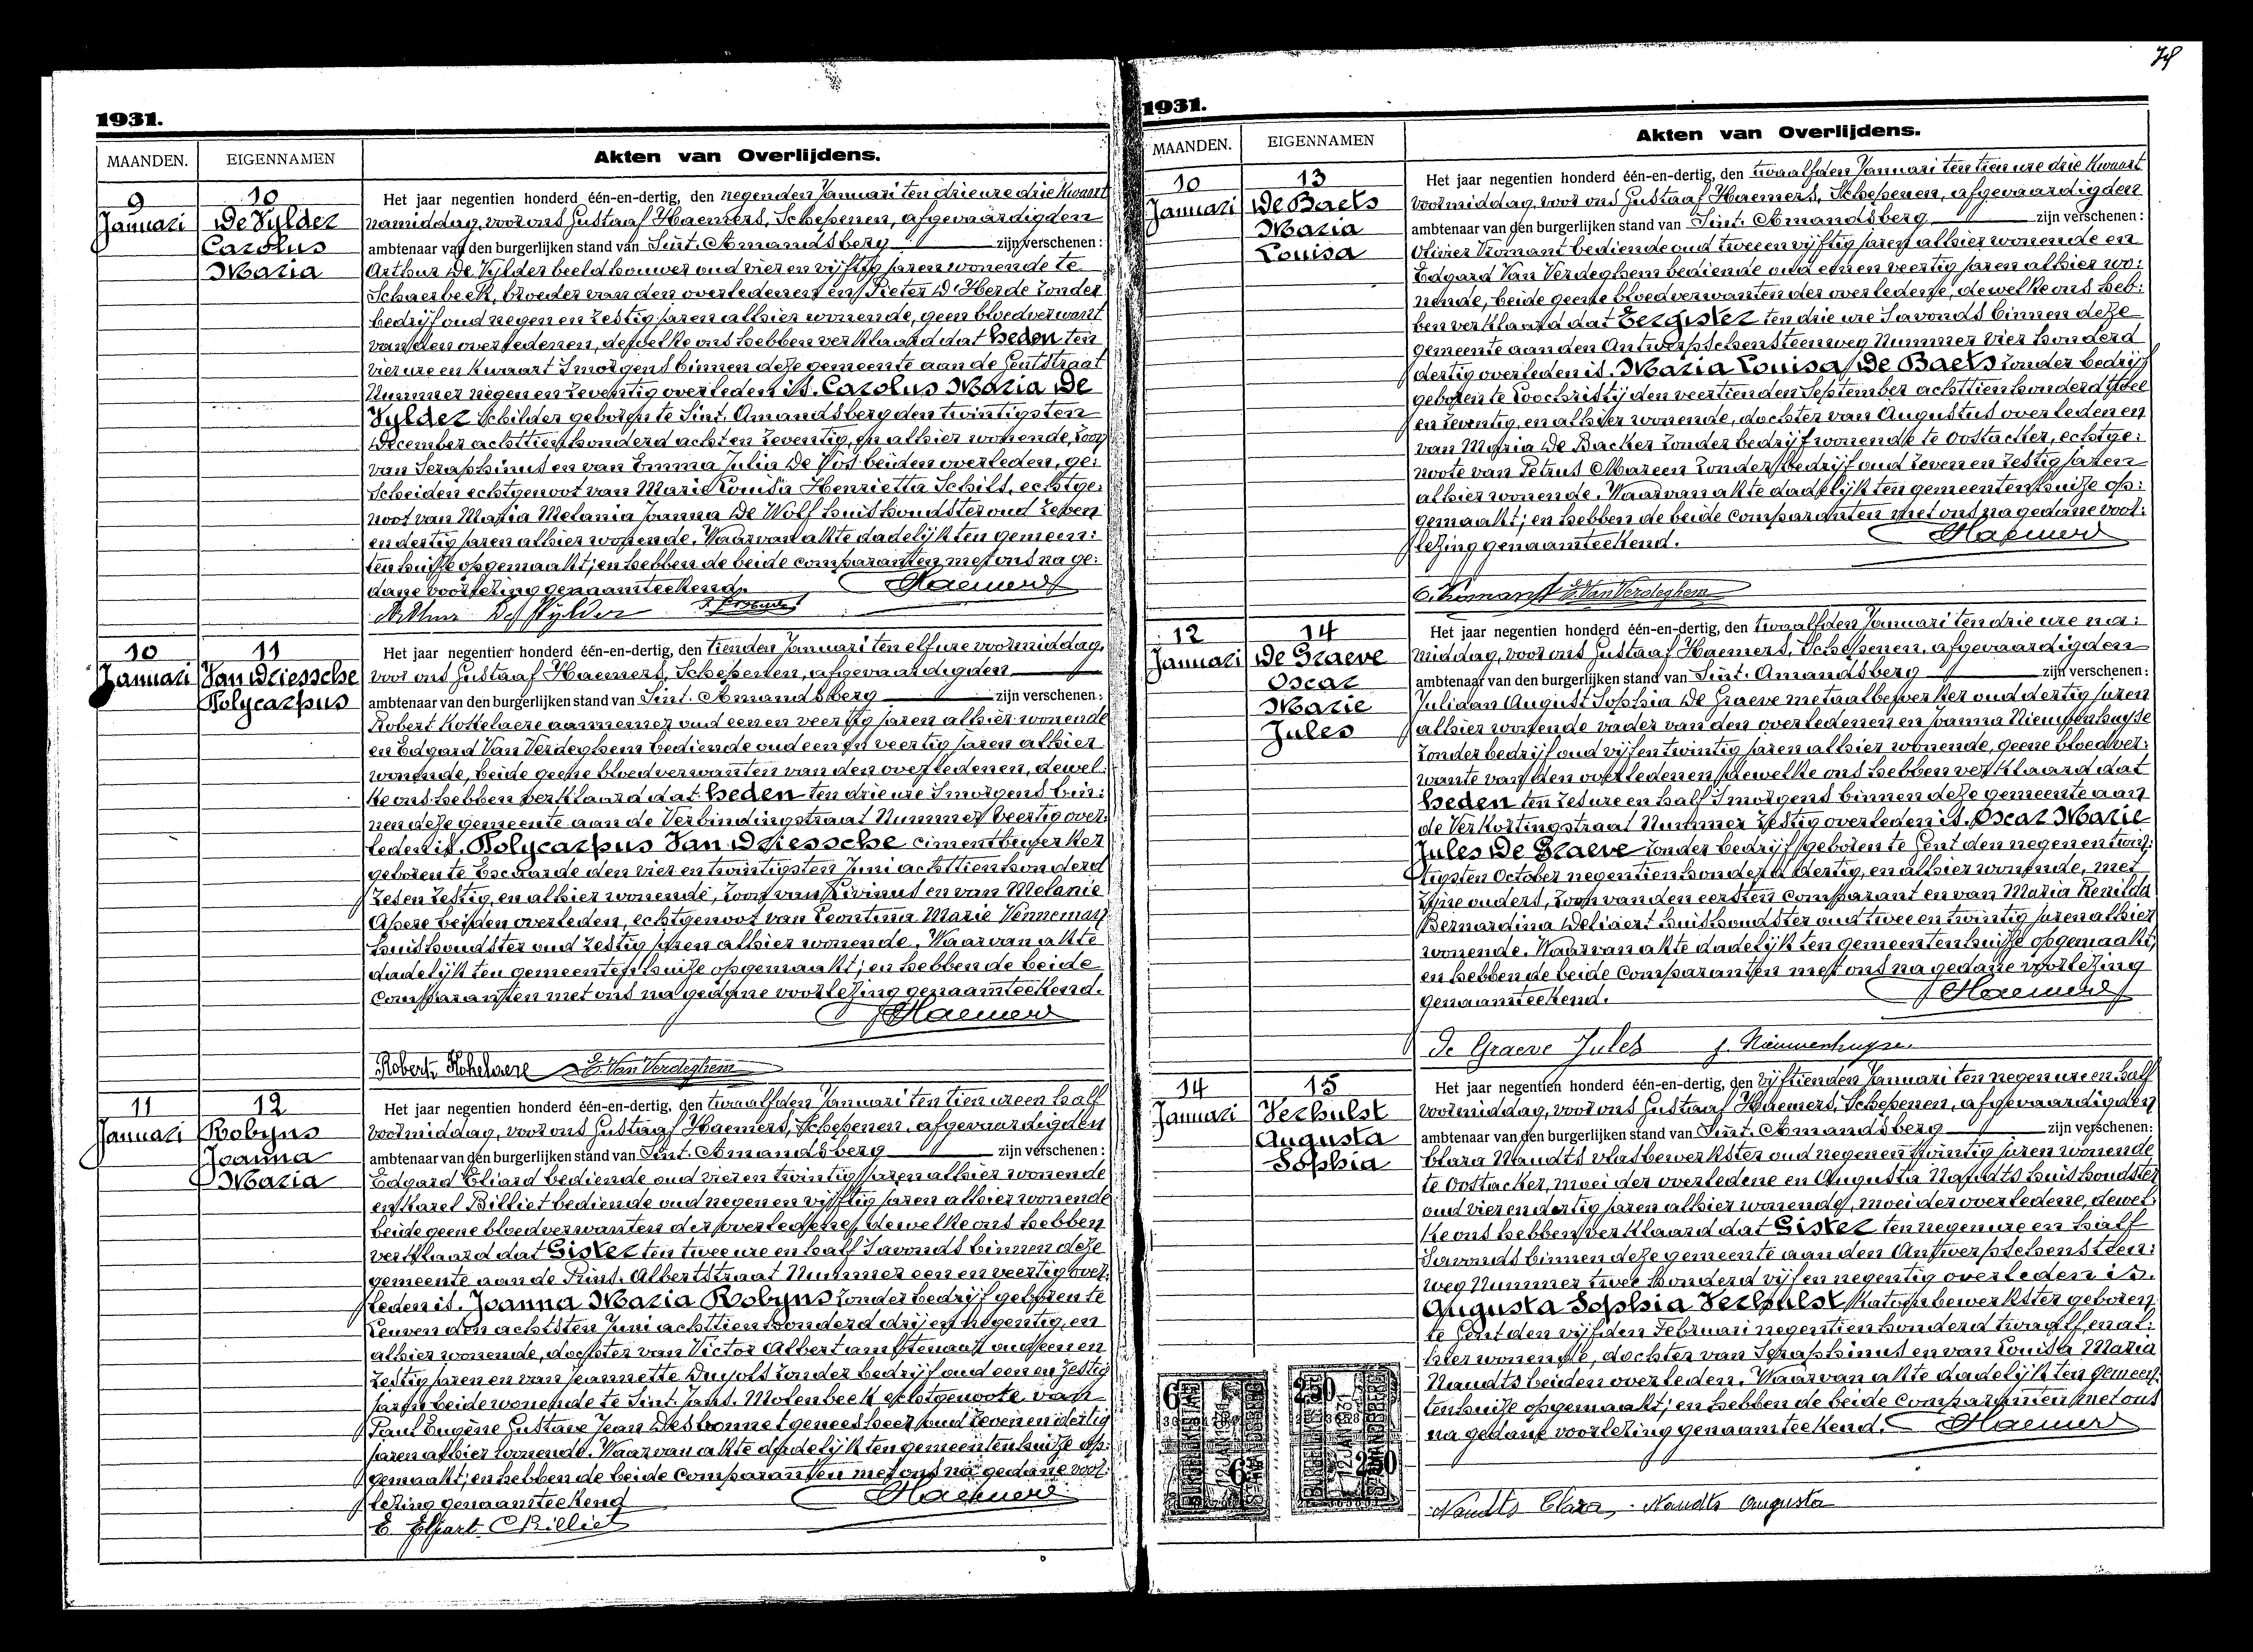 78
1931.
MAANDEN.
EIGENNAMEN
Akten van Overlijdens.
9
Januari
10
De Vylder
Carolus
Maria
Het jaar negentien honderd één-en-dertig, den negenden Januari ten drie ure drie kwart
namiddag, voor ons Gustaaf Haemers, Schepenen, afgevaardigden
ambtenaar van den burgerlijken stand van Sint-Amandsberg zijn verschenen:
Arthur De Vylder beeldhouwer oud vier en vijftig jaren wonende te
Schaerbeek, broeder van den overledenen en Pieter D'Herde zonder
bedrijf oud negen en zestig jaren alhier wonende, geen bloedverwant
van den overledenen, dewelke ons hebben verklaard dat heden ten
vier ure en kwaart smorgens binnen deze gemeente aan de Gentstraat
Nummer negen en zeventig overleden is. Carolus Maria De
Vylder schilder geboren te Sint-Amandsberg den twintigsten
December achttien honderd acht en zeventig, en alhier wonende, zoon
van Seraphinus en van Emma Julia De Vos beiden overleden, ge:
scheiden echtgenoot van Marie Louisa Henrietta Schils, echtge:
noot van Maria Melania Joanna De Wolf huishoudster oud zeven
en dertig jaren alhier wonende. Waarvan akte dadelijk ten gemeen:
tenhuize opgemaakt; en hebben de beide comparanten met ons na ge:
dane voorlezing genaamteekend. Haemers
Arthur De Vylder
10
Januari
11
Van Driessche
Polycarpus
Het jaar negentien honderd één-en-dertig, den tienden Januari ten elf ure voormiddag,
voor ons Gustaaf Haemers, Schepenen, afgevaardigden
ambtenaar van den burgerlijken stand van Sint-Amandsberg zijn verschenen:
Robert Kokelaere aannemer oud een en veertig jaren alhier wonende
en Edgard Van Verdeghem bediende oud een en veertig jaren alhier
wonende, beide geene bloedverwanten van den overledenen, dewel:
ke ons hebben verklaard dat heden ten drie ure smorgens bin:
nen deze gemeente aan de Verbindingstraat Nummer veertig over:
leden is. Polycarpus Van Driessche cimentbewerker
geboren te Escaarde den vier en twintigsten Juni achttien honderd
zes en zestig, en alhier wonende, zoon van Livinus en van Melanie
Apere beiden overleden, echtgenoot van Leontina Marie Venneman
huishoudster oud zestig jaren alhier wonende. Waarvan akte
dadelijk ten gemeentenhuize opgemaakt; en hebben de beide
comparanten met ons na gedane voorlezing genaamteekend.
Haemers
Robert Kokelaere E. Van Verdeghem
11
Januari
12
Robyns
Joanna
Maria
Het jaar negentien honderd één-en-dertig, den twaalfden Januari ten tien ure en half
voormiddag, voor ons Gustaaf Haemers, Schepenen, afgevaardigden
ambtenaar van den burgerlijken stand van Sint-Amandsberg zijn verschenen:
Edgard Eliard bediende oud vier en twintig jaren alhier wonende
en Karel Billiet bediende oud negen en vijftig jaren alhier wonende
beide geene bloedverwanten der overledene, dewelke ons hebben
verklaard dat Gister ten twee ure en half savonds binnen deze
gemeente aan de Prins Albertstraat Nummer een en veertig over:
leden is. Joanna Maria Robyns zonder bedrijf geboren te
Leuven den achtsten Juni achttien honderd drij en negentig, en
alhier wonende, dochter van Victor Albert ambtenaar oud een en
zestig jaren en van Jeannette zonder bedrijf oud een en zestig
jaren beide wonende te Sint-Jans-Molenbeek echtgenoote van
Paul Eugène Gustave Jean Desbonnet geneesheer oud zeven en dertig
jaren alhier wonende. Waarvan akte dadelijk ten gemeentenhuize op:
gemaakt; en hebben de beide comparanten met ons na gedane voor:
lezing genaamteekend Haemers
E. Eliart C Billiet
1931.
MAANDEN.
EIGENNAMEN
Akten van Overlijdens.
10
Januari
13
De Baets
Maria
Louisa
Het jaar negentien honderd één-en-dertig, den twaalfden Januari ten tien ure drie kwaart
voormiddag, voor ons Gustaaf Haemers, Schepenen, afgevaardigden
ambtenaar van den burgerlijken stand van Sint-Amandsberg zijn verschenen:
Olivier Vromant bediende oud twee en vijftig jaren alhier wonende en
Edgard Van Verdeghem bediende oud een en veertig jaren alhier wo:
nende, beide geene bloedverwanten der overledene, dewelke ons heb:
ben verklaard dat Eergister ten drie ure savonds binnen deze
gemeente aan den Antwerpschensteenweg Nummer vier honderd
dertig overleden is. Maria Louisa De Baets zonder bedrijf
geboren te Loochristij den veertienden September achttien honderd twee
en zeventig, en alhier wonende, dochter van Augustus overleden en
van Maria De Backer zonder bedrijf wonende te Oostacker, echtge:
noote van Petrus Mareen zonder bedrijf oud zeven en zestig jaren
alhier wonende. Waarvan akte dadelijk ten gemeentenhuize op:
gemaakt; en hebben de beide comparanten met ons na gedane voor:
lezing genaamteekend. Haemers
O. Vromant E. Van Verdeghem
12
Januari
14
De Graeve
Oscar
Marie
Jules
Het jaar negentien honderd één-en-dertig, den twaalfden Januari ten drie ure na:
middag, voor ons Gustaaf Haemers, Schepenen, afgevaardigden
ambtenaar van den burgerlijken stand van Sint-Amandsberg zijn verschenen:
Juliaan August Sophia De Graeve metaalbewerker oud dertig jaren
alhier wonende vader van den overledenen en Joanna Nieuwenhuyse
zonder bedrijf oud vijf en twintig jaren alhier wonende, geene bloedver:
wante van den overledenen, dewelke ons hebben verklaard dat
heden ten zes ure en half smorgens binnen deze gemeente aan
de Verkortingstraat Nummer zestig overleden is. Oscar Marie
Jules De Graeve zonder bedrijf geboren te Gent den negen en twin:
tigsten October negentien honderd dertig, en alhier wonende, met
zijne ouders, zoon van den eersten comparant en van Maria Renilda
Bernardina Weliaert huishoudster oud twee en twintig jaren alhier
wonende. Waarvan akte dadelijk ten gemeentenhuize opgemaakt;
en hebben de beide comparanten met ons na gedane voorlezing
genaamteekend. Haemers
De Graeve Jules J. Nieuwenhuyse
14
Januari
15
Verhulst
Augusta
Sophia
Het jaar negentien honderd één-en-dertig, den vijftienden Januari ten negen ure en half
voormiddag, voor ons Gustaaf Haemers, Schepenen, afgevaardigden
ambtenaar van den burgerlijken stand van Sint-Amandsberg zijn verschenen:
Clara Naudts vlasbewerkster oud negen en twintig jaren wonende
te Oostacker, moei der overledene en Augusta Naudts huishoudster
oud vier en dertig jaren alhier wonende, moei der overledene, dewel:
ke ons hebben verklaard dat Gister ten negen ure en half
savonds binnen deze gemeente aan den Antwerpschensteen:
weg Nummer twee honderd vijf en negentig overleden is.
Augusta Sophia Verhulst katoenbewerkster geboren
te Gent den vijfden Februari negentien honderd twaalf en al:
hier wonende, dochter van Seraphinus en van Louisa Maria
Naudts beiden overleden. Waarvan akte dadelijk ten gemeen:
tenhuize opgemaakt; en hebben de beide comparanten met ons
na gedane voorlezing genaamteekend. Haemers
Naudts Clara, Naudts Augusta